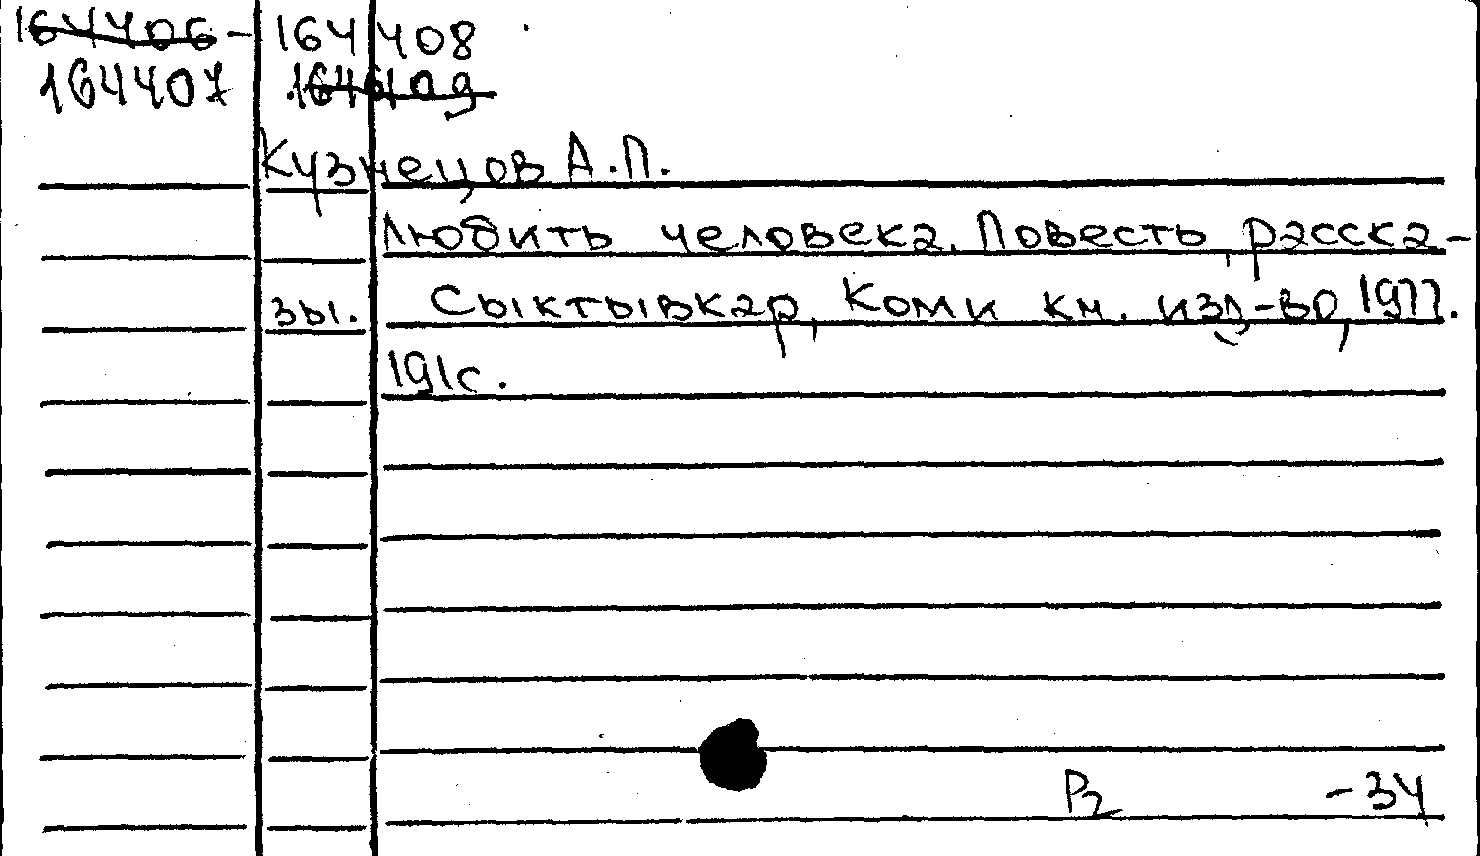 164406- 164408
164407 164409
Кузнецов А.П.
Любить человека. Повесть, расска-
зы. Сыктывкар, Коми кн. изд-во, 1977.
191с.
Р2 -34